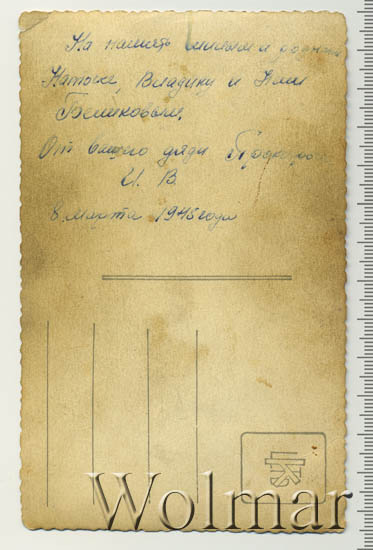 На память милым и родным
Натоше, Владику и
Беликовым.
От вашего дяди
И. В.
8 марта 1945 года
Wolmar